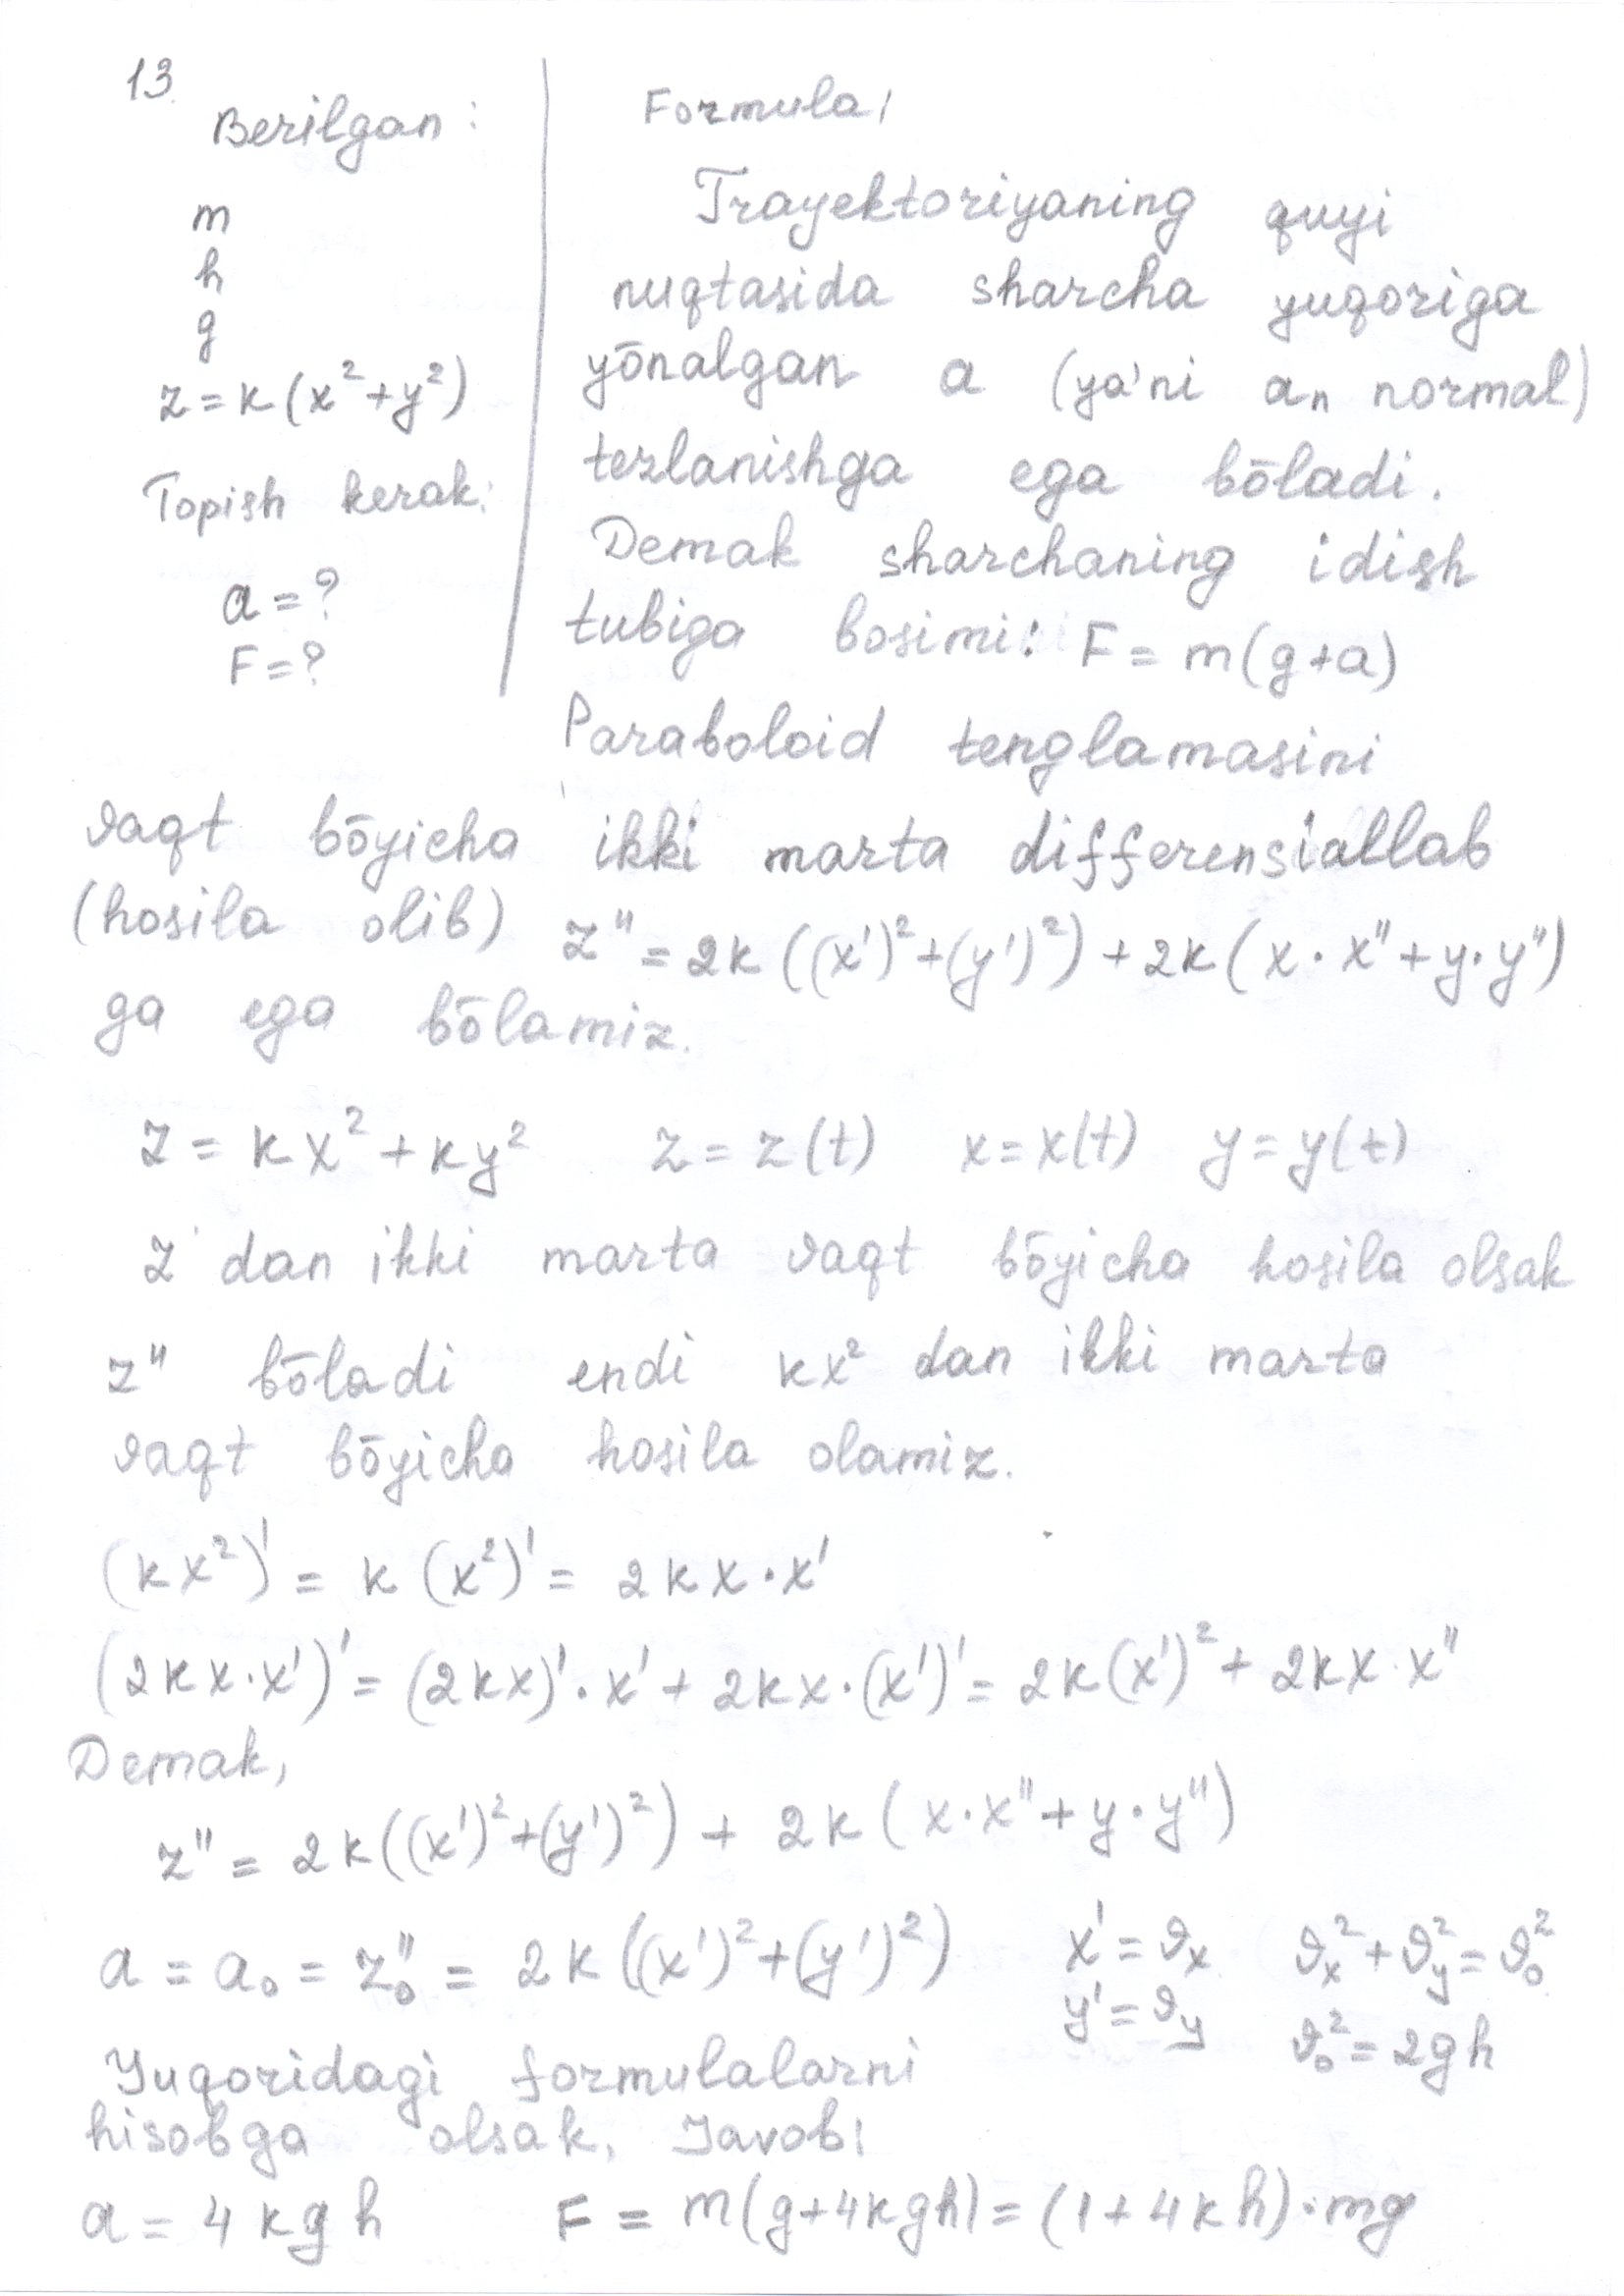 13.
Berilgan:
m
h
g
z = k(x²+y²)
Topish kerak:
a = ?
F = ?
Formula:
Trayektoriyaning quyi
nuqtasida sharcha yuqoriga
yōnalgan a (ya'ni aₙ normal)
tezlanishga ega bōladi.
Demak sharchaning idish
tubiga bosimi: F = m(g+a)
Paraboloid tenglamasini
vaqt bōyicha ikki marta differensiallab
(hosila olib) z'' = 2k((x')²+(y')²)+2k(x·x''+y·y'')
ga ega bōlamiz.
z = kx²+ky² z = z(t) x = x(t) y = y(t)
z dan ikki marta vaqt bōyicha hosila olsak
z'' bōladi endi kx² dan ikki marta
vaqt bōyicha hosila olamiz.
(kx²)' = k(x²)' = 2kx·x'
(2kx·x')' = (2kx)'·x' + 2kx·(x')' = 2k(x')² + 2kx·x''
Demak,
z'' = 2k((x')²+(y')²) + 2k(x·x''+y·y'')
a = a₀ = z₀'' = 2k((x')²+(y')²) x' = ϑₓ ϑₓ²+ϑ_y² = ϑ₀²
y' = ϑ_y ϑ₀² = 2gh
Yuqoridagi formulalarni
hisobga olsak, Javob:
a = 4kgh F = m(g+4kgh) = (1+4kh)·mg